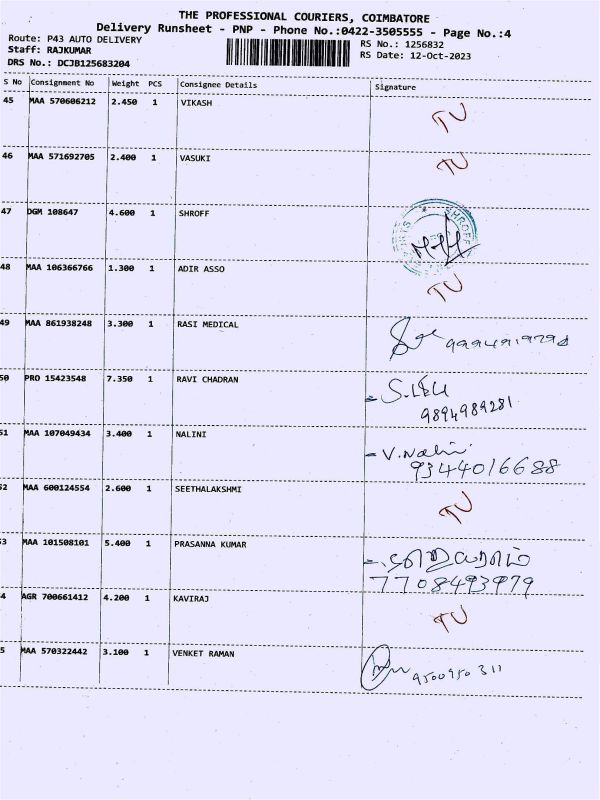 THE PROFESSIONAL COURIERS, COIMBATORE
Delivery Runsheet - PNP - Phone No.:0422-3505555 - Page No.:4
Route: P43 AUTO DELIVERY
RS No.: 1256832
Staff: RAJKUMAR
RS Date: 12-Oct-2023
DRS No.: DCJB125683204
S No Consignment No Weight PCS Consignee Details Signature
45 MAA 570606212 2.450 1 VIKASH TU
46 MAA 571692705 2.400 1 VASUKI TU
47 DGM 108647 4.600 1 SHROFF
SHROFF
48 MAA 106366766 1.300 1 ADIR ASSO TU
49 MAA 861938248 3.300 1 RASI MEDICAL
50 PRO 15423548 7.350 1 RAVI CHADRAN
9894989281
51 MAA 107049434 3.400 1 NALINI V. Nalini
9344016688
52 MAA 600124554 2.600 1 SEETHALAKSHMI TU
53 MAA 101508101 5.400 1 PRASANNA KUMAR
7708493979
4 AGR 700661412 4.200 1 KAVIRAJ TU
5 MAA 570322442 3.100 1 VENKET RAMAN 9500950311